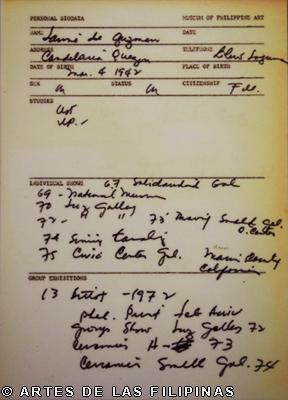 PERSONAL BIODATA MUSEUM OF PHILIPPINE ART
NAME Jaime de Guzman DATE
ADDRESS Candelaria Quezon TELEPHONE
DATE OF BIRTH Mar. 4 1942 PLACE OF BIRTH Liliw Laguna
SEX M STATUS M CITIZENSHIP Fil.
STUDIES
UST
U.P.
INDIVIDUAL SHOWS 67 Solidaridad Gal
69 - National Museum
70 Luz Gallery
72 - " " 73 Small Gal.
74
75 Civic Center Gal.
California
GROUP EXHIBITIONS
13 Artist - 1972
Phil.
Group Show Luz Gallery 72
Ceramics 73
Ceramics Small Gal. 74
© ARTES DE LAS FILIPINAS